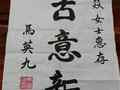 女士惠存
古意新
馬英九